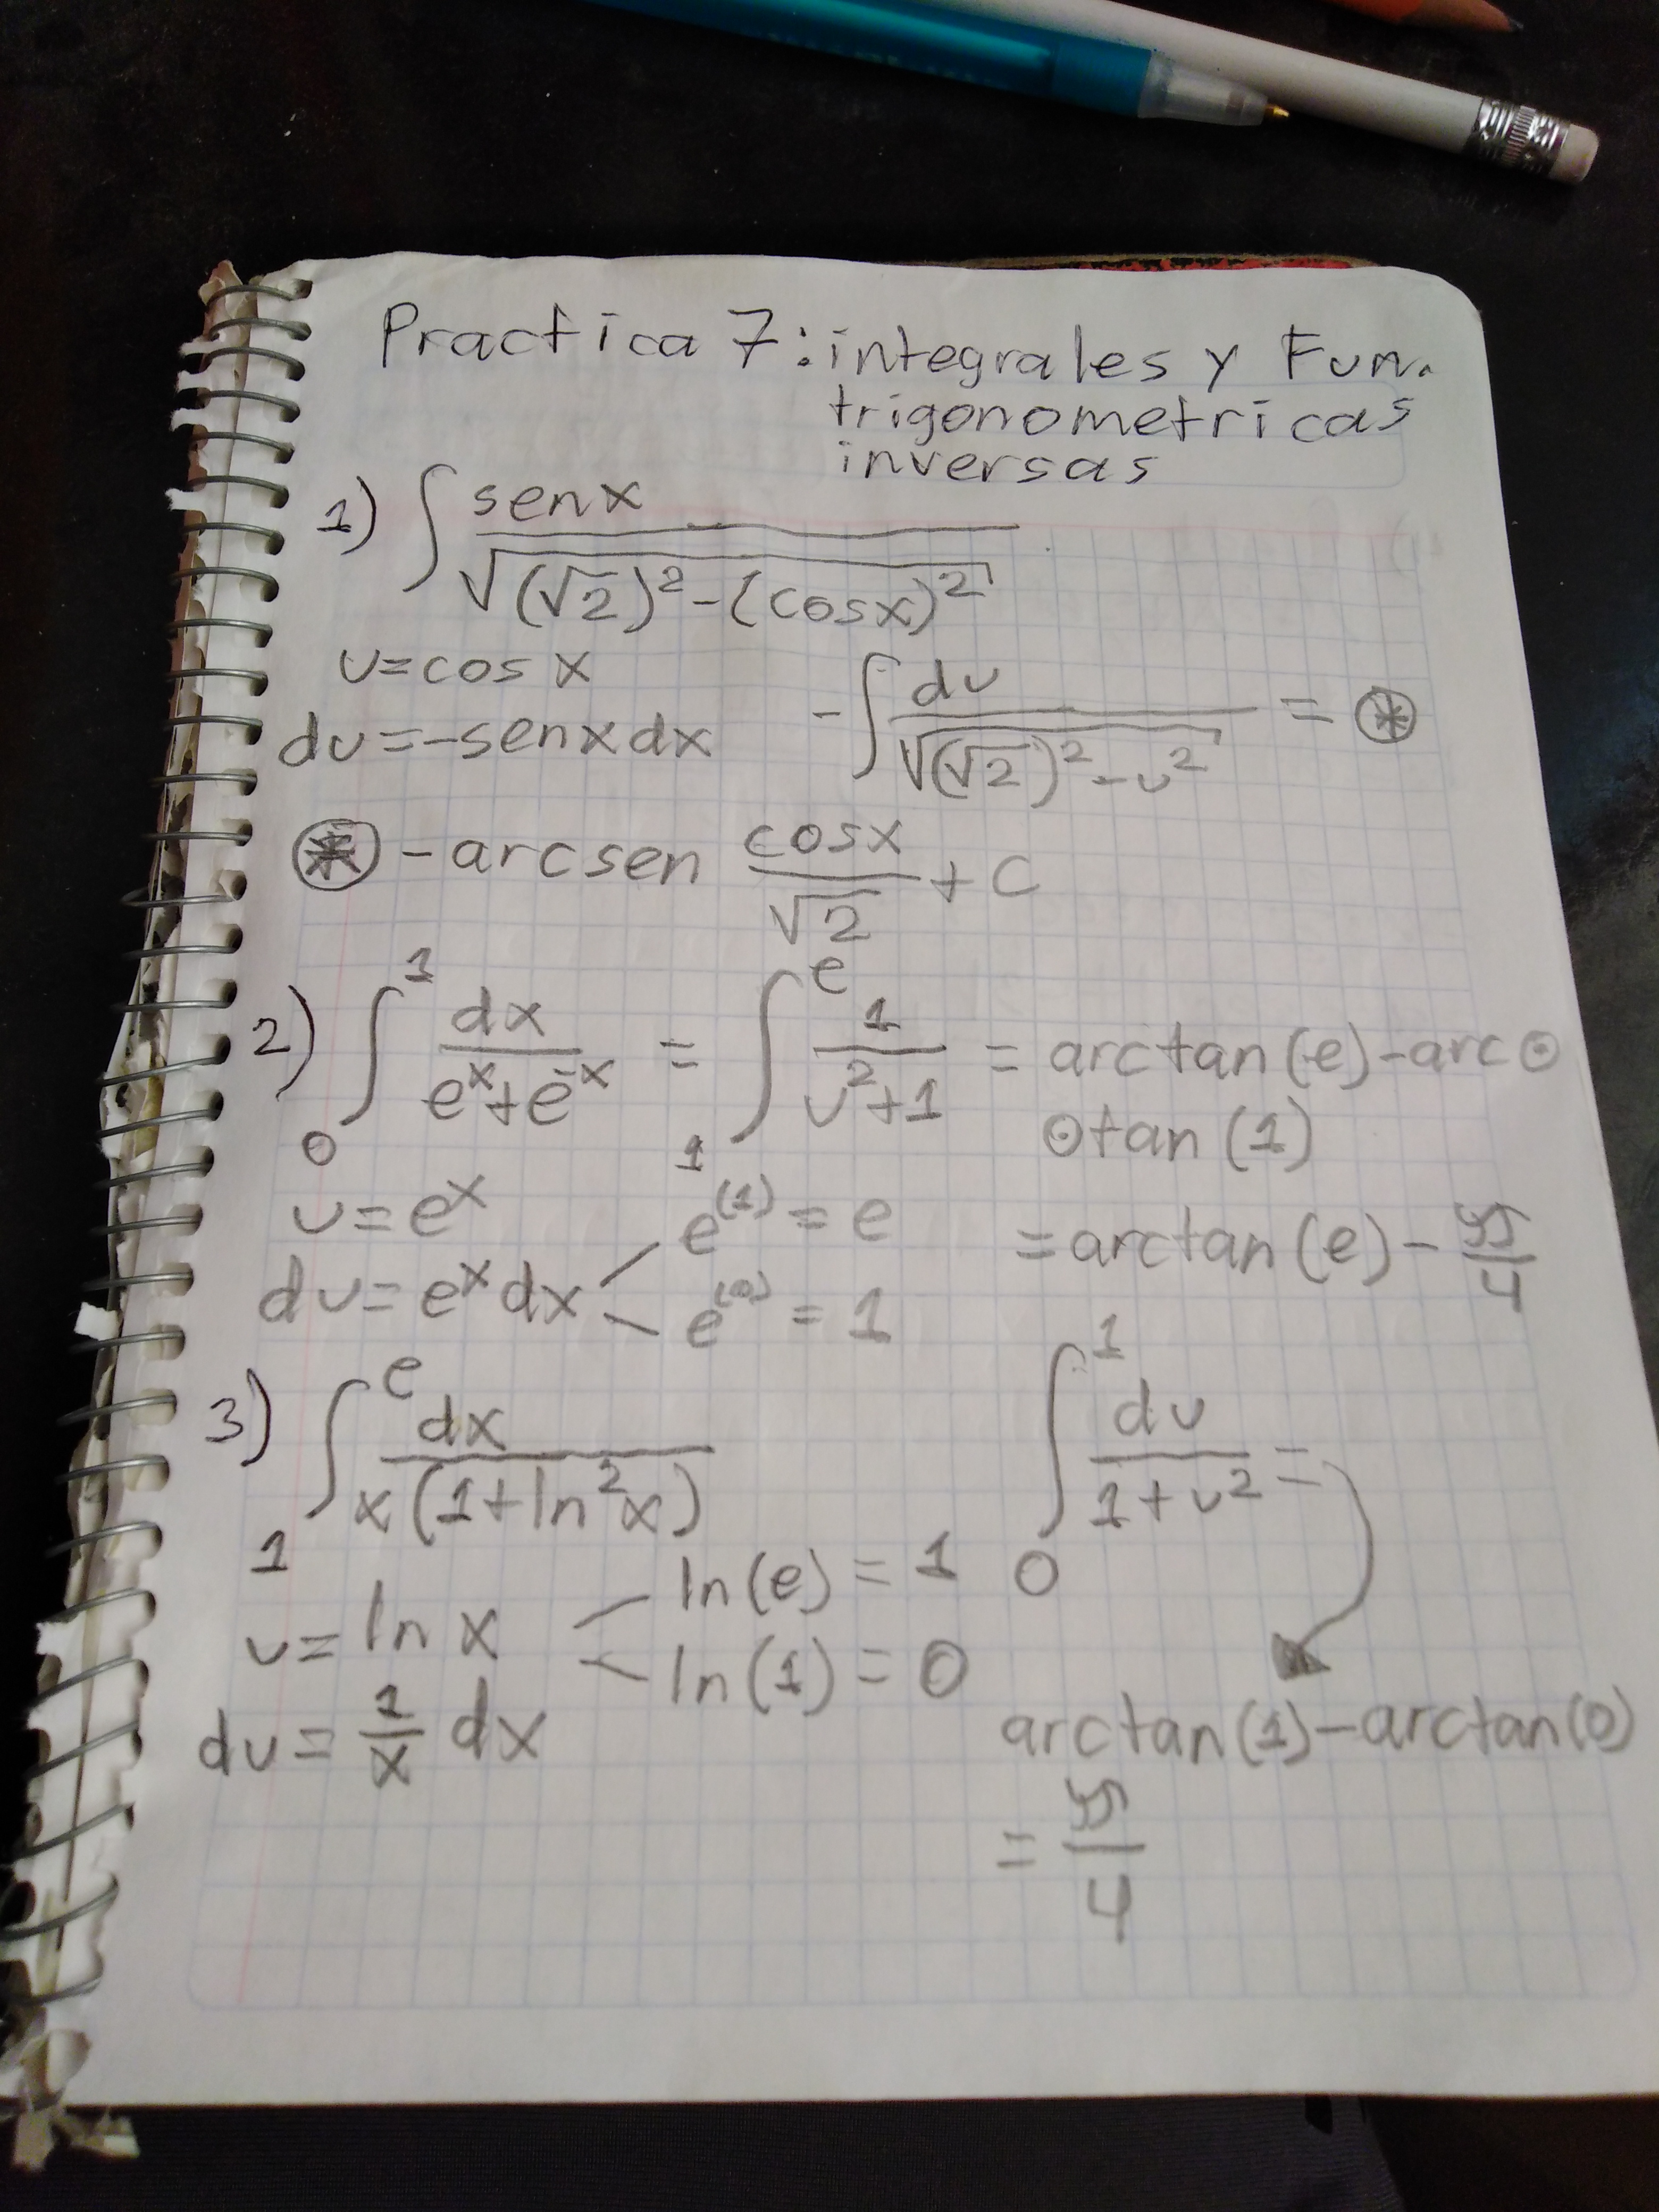 Practica 7: integrales y Fun.
trigonometricas
inversas
1) ∫ senx / √((√2)² - (cosx)²)
u = cos x
du = -senx dx
-∫ du / √((√2)² - u²) = ⊛
⊛ -arcsen cosx / √2 + C
2) ∫₀¹ dx / (eˣ + e⁻ˣ) = ∫₁ᵉ 1 / (u² + 1) = arctan(e) - arc ⊙
⊙ tan(1)
u = eˣ
e⁽¹⁾ = e
= arctan(e) - π/4
du = eˣ dx
e⁽⁰⁾ = 1
3) ∫₁ᵉ dx / x(1 + ln²x)
∫₀¹ du / (1 + u²) =
u = ln x
ln(e) = 1
ln(1) = 0
du = 1/x dx
arctan(1) - arctan(0)
= π/4